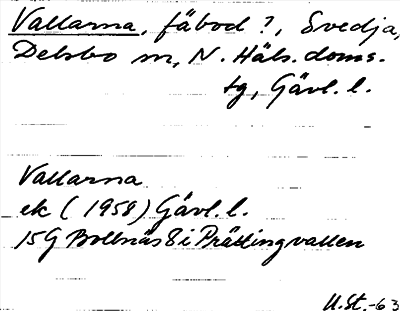 Vallarna, fäbod?, Svedja,
Delsbo sn, N. Häls. doms.
tg, Gävl. l.
Vallarna
ek (1958) Gävl. l.
15G Bollnäs 8i Prästingvallen
U.St.-63